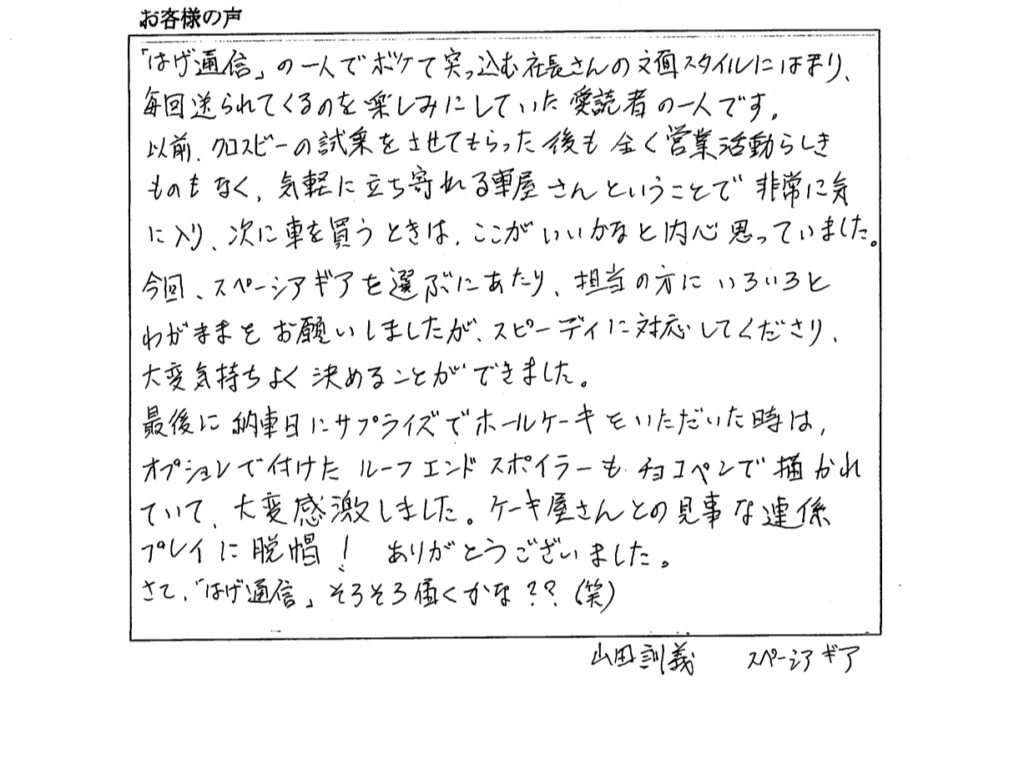 お客様の声
「はげ通信」の一人でボケて突っ込む社長さんの文面スタイルにはまり、
毎回送られてくるのを楽しみにしていた愛読者の一人です。
以前、クロスビーの試乗をさせてもらった後も全く営業活動らしき
ものもなく、気軽に立ち寄れる車屋さんということで非常に気
に入り、次に車を買うときは、ここがいいかなと内心思っていました。
今回、スペーシアギアを選ぶにあたり、担当の方にいろいろと
わがままをお願いしましたが、スピーディに対応してくださり、
大変気持ちよく決めることができました。
最後に納車日にサプライズでホールケーキをいただいた時は、
オプションで付けたルーフエンドスポイラーもチョコペンで描かれ
ていて、大変感激しました。ケーキ屋さんとの見事な連係
プレイに脱帽！ ありがとうございました。
さて、「はげ通信」そろそろ働くかな？？（笑）
山田訓義 スペーシアギア